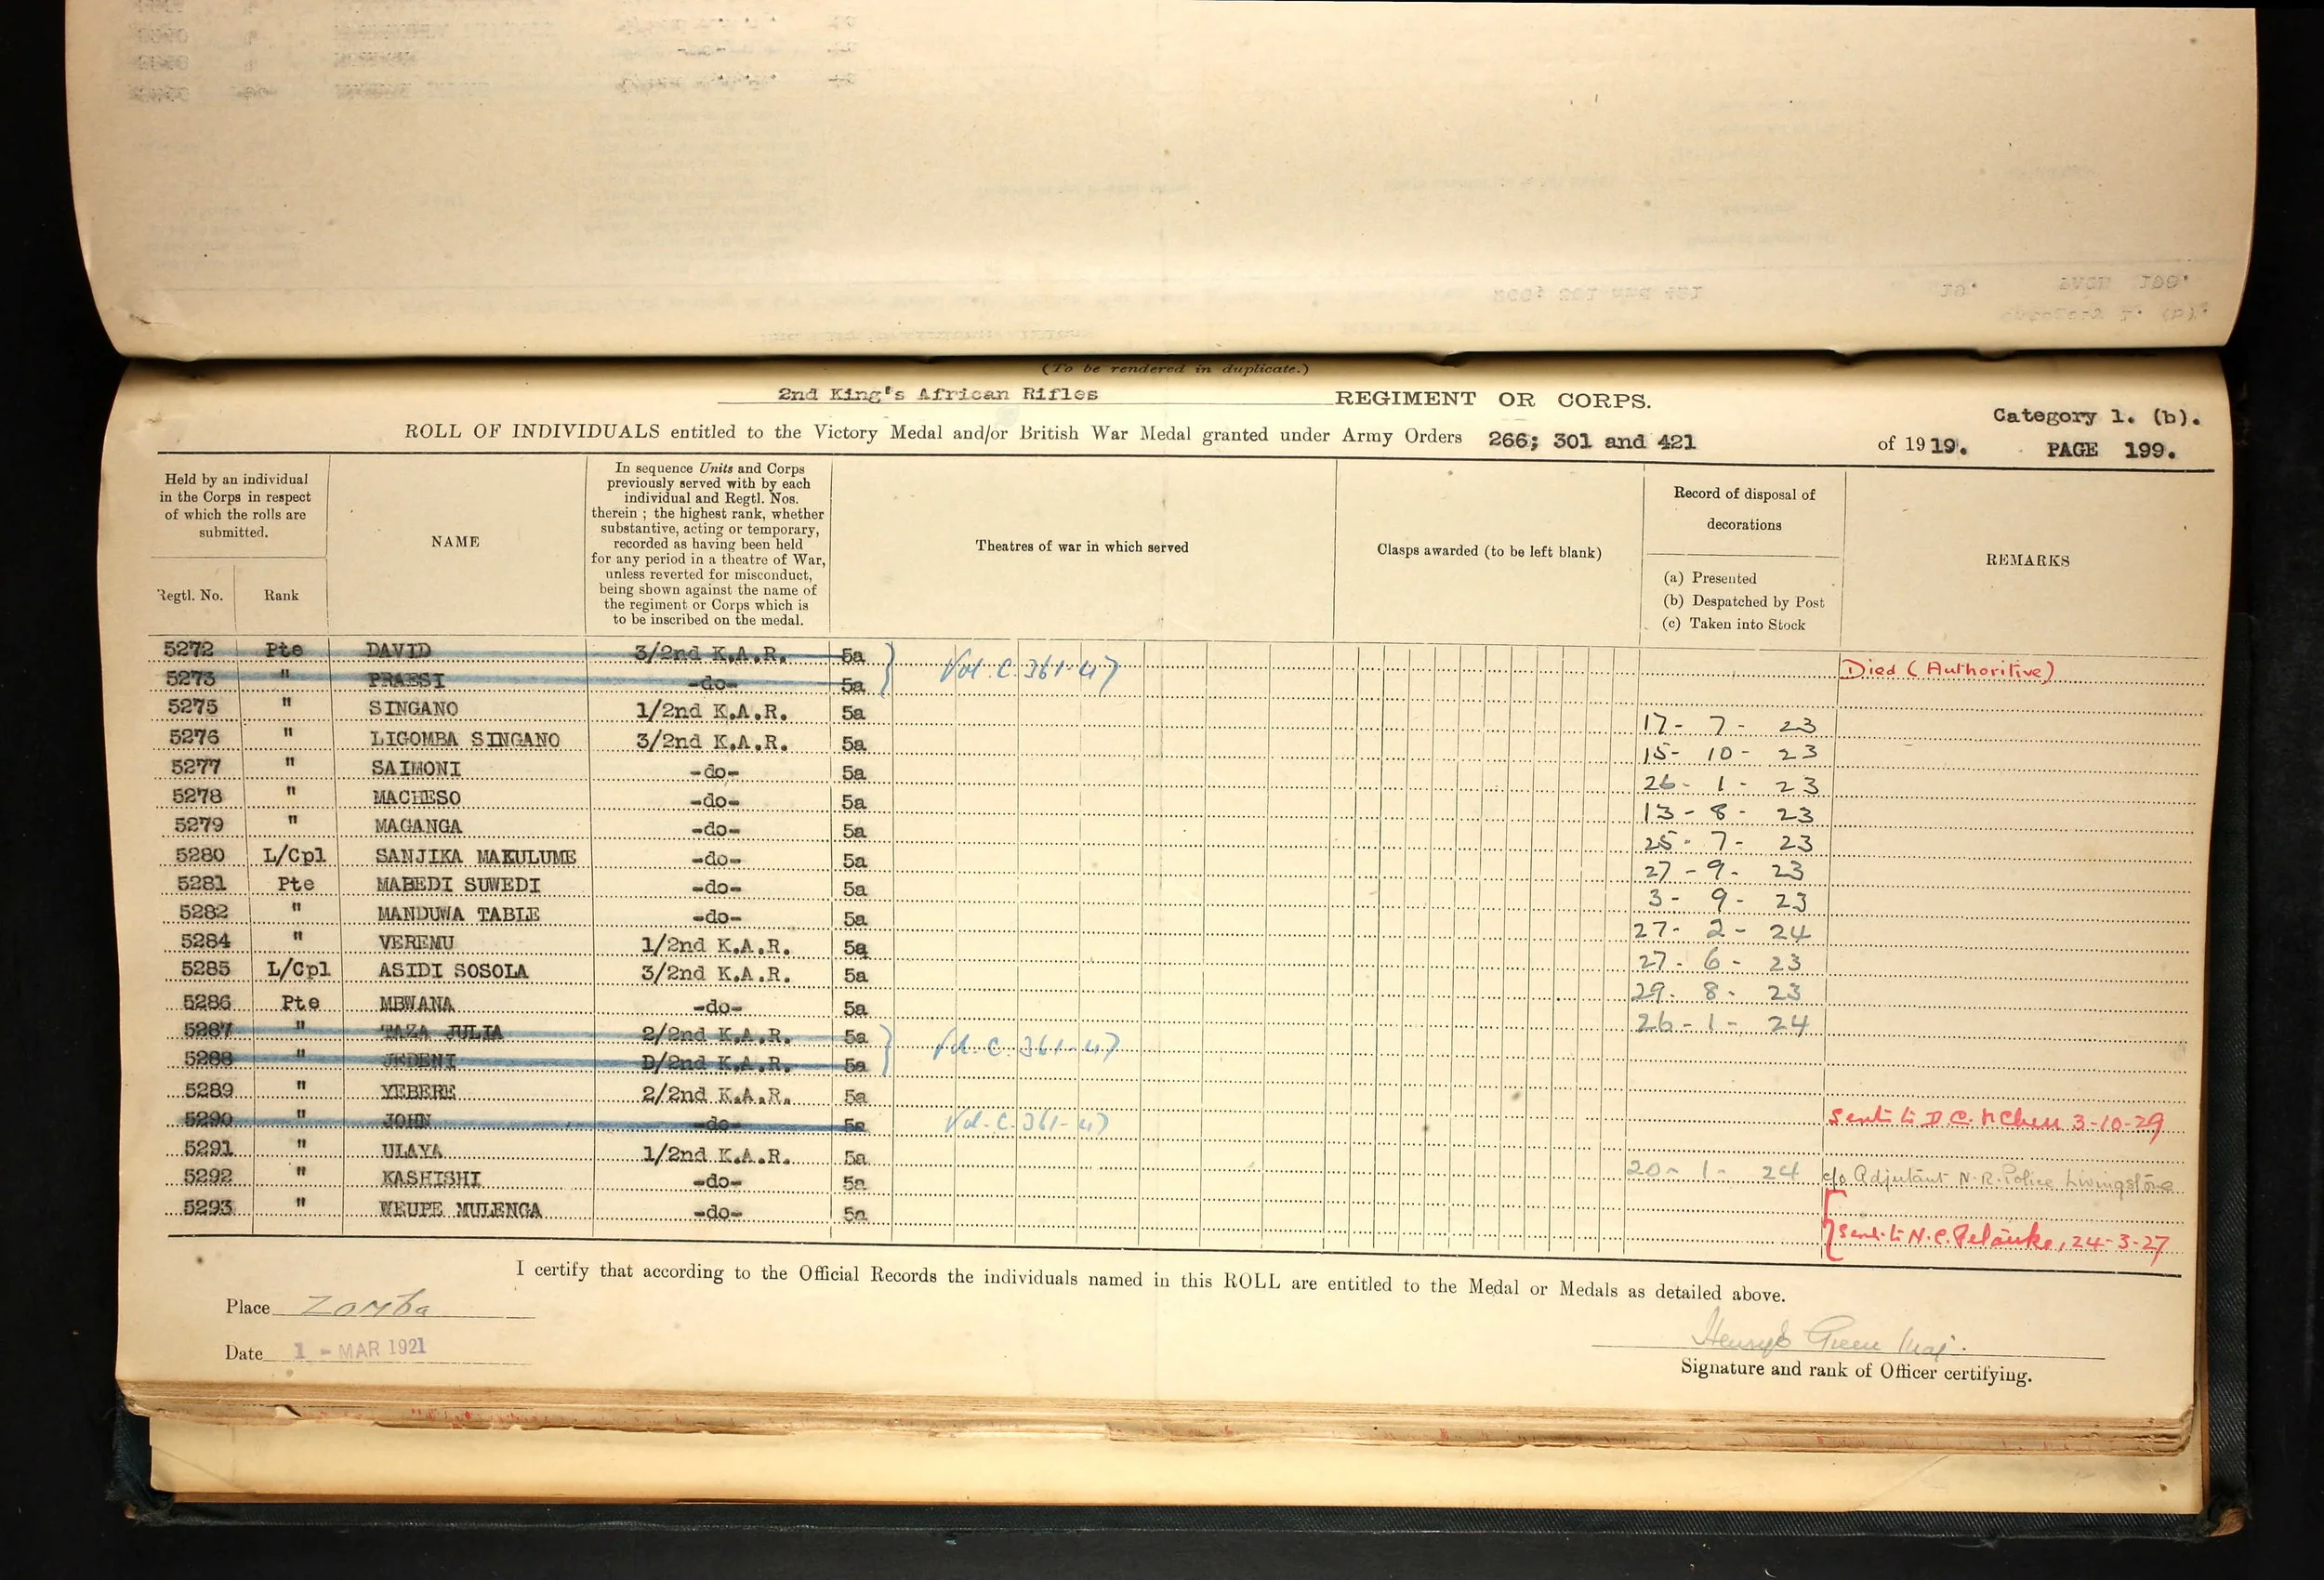 (To be rendered in duplicate.)
2nd King's African Rifles REGIMENT OR CORPS.
Category 1. (b).
ROLL OF INDIVIDUALS entitled to the Victory Medal and/or British War Medal granted under Army Orders 266; 301 and 421 of 1919. PAGE 199.
Held by an individual
in the Corps in respect
of which the rolls are
submitted.
Regtl. No. Rank
NAME
In sequence Units and Corps
previously served with by each
individual and Regtl. Nos.
therein ; the highest rank, whether
substantive, acting or temporary,
recorded as having been held
for any period in a theatre of War,
unless reverted for misconduct,
being shown against the name of
the regiment or Corps which is
to be inscribed on the medal.
Theatres of war in which served
Clasps awarded (to be left blank)
Record of disposal of
decorations
(a) Presented
(b) Despatched by Post
(c) Taken into Stock
REMARKS
5272 Pte DAVID 3/2nd K.A.R. 5a } Vol. C. 361-47 Died (Authoritive)
5273 " PRAESI -do- 5a
5275 " SINGANO 1/2nd K.A.R. 5a 17- 7- 23
5276 " LIGOMBA SINGANO 3/2nd K.A.R. 5a 15- 10- 23
5277 " SAIMONI -do- 5a 26- 1- 23
5278 " MACHESO -do- 5a 13- 8- 23
5279 " MAGANGA -do- 5a 25- 7- 23
5280 L/Cpl SANJIKA MAKULUME -do- 5a 27- 9- 23
5281 Pte MABEDI SUWEDI -do- 5a 3- 9- 23
5282 " MANDUWA TABLE -do- 5a 27- 2- 24
5284 " VEREMU 1/2nd K.A.R. 5a 27- 6- 23
5285 L/Cpl ASIDI SOSOLA 3/2nd K.A.R. 5a 29. 8- 23
5286 Pte MBWANA -do- 5a 26-1- 24
5287 " TAZA JULIA 2/2nd K.A.R. 5a } Vol. C. 361-47
5288 " JEDENI D/2nd K.A.R. 5a
5289 " YEBERE 2/2nd K.A.R. 5a Sent to D.C. 3-10-29
5290 " JOHN -do- 5a Vol. C. 361-47
5291 " ULAYA 1/2nd K.A.R. 5a 20- 1- 24 c/o Adjutant N.R. Police Livingstone
5292 " KASHISHI -do- 5a
5293 " WEUPE MULENGA -do- 5a { Sent to N.C. 24-3-27
I certify that according to the Official Records the individuals named in this ROLL are entitled to the Medal or Medals as detailed above.
Place Zomba
Date 1 - MAR 1921
Green Maj.
Signature and rank of Officer certifying.